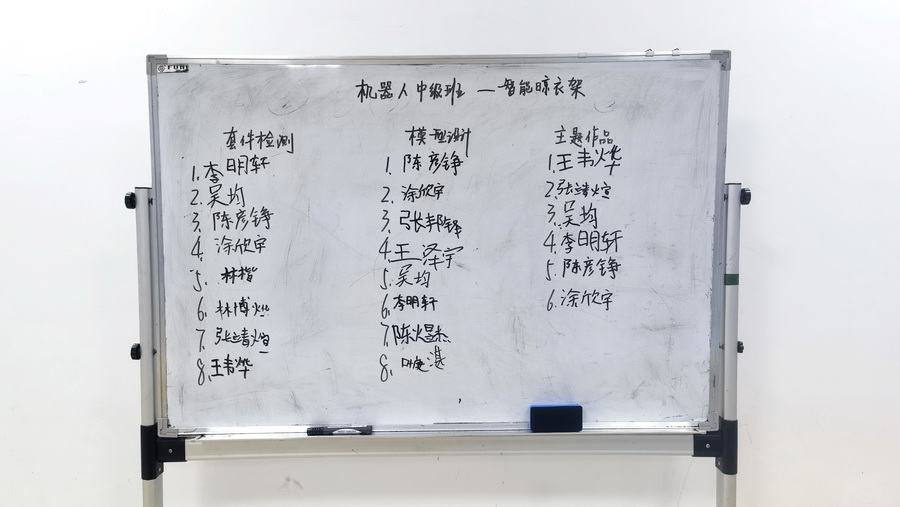 机器人中级班 — 智能晾衣架
套件检测
1. 李明轩
2. 吴均
3. 陈彦铮
4. 涂欣宇
5. 林楷
6. 林博
7. 张靖煊
8. 王韦烨
模型设计
1. 陈彦铮
2. 涂欣宇
3. 张邦铎
4. 王泽宇
5. 吴均
6. 李明轩
7. 陈焜杰
8. 叶湛
主题作品
1. 王韦烨
2. 张靖煊
3. 吴均
4. 李明轩
5. 陈彦铮
6. 涂欣宇